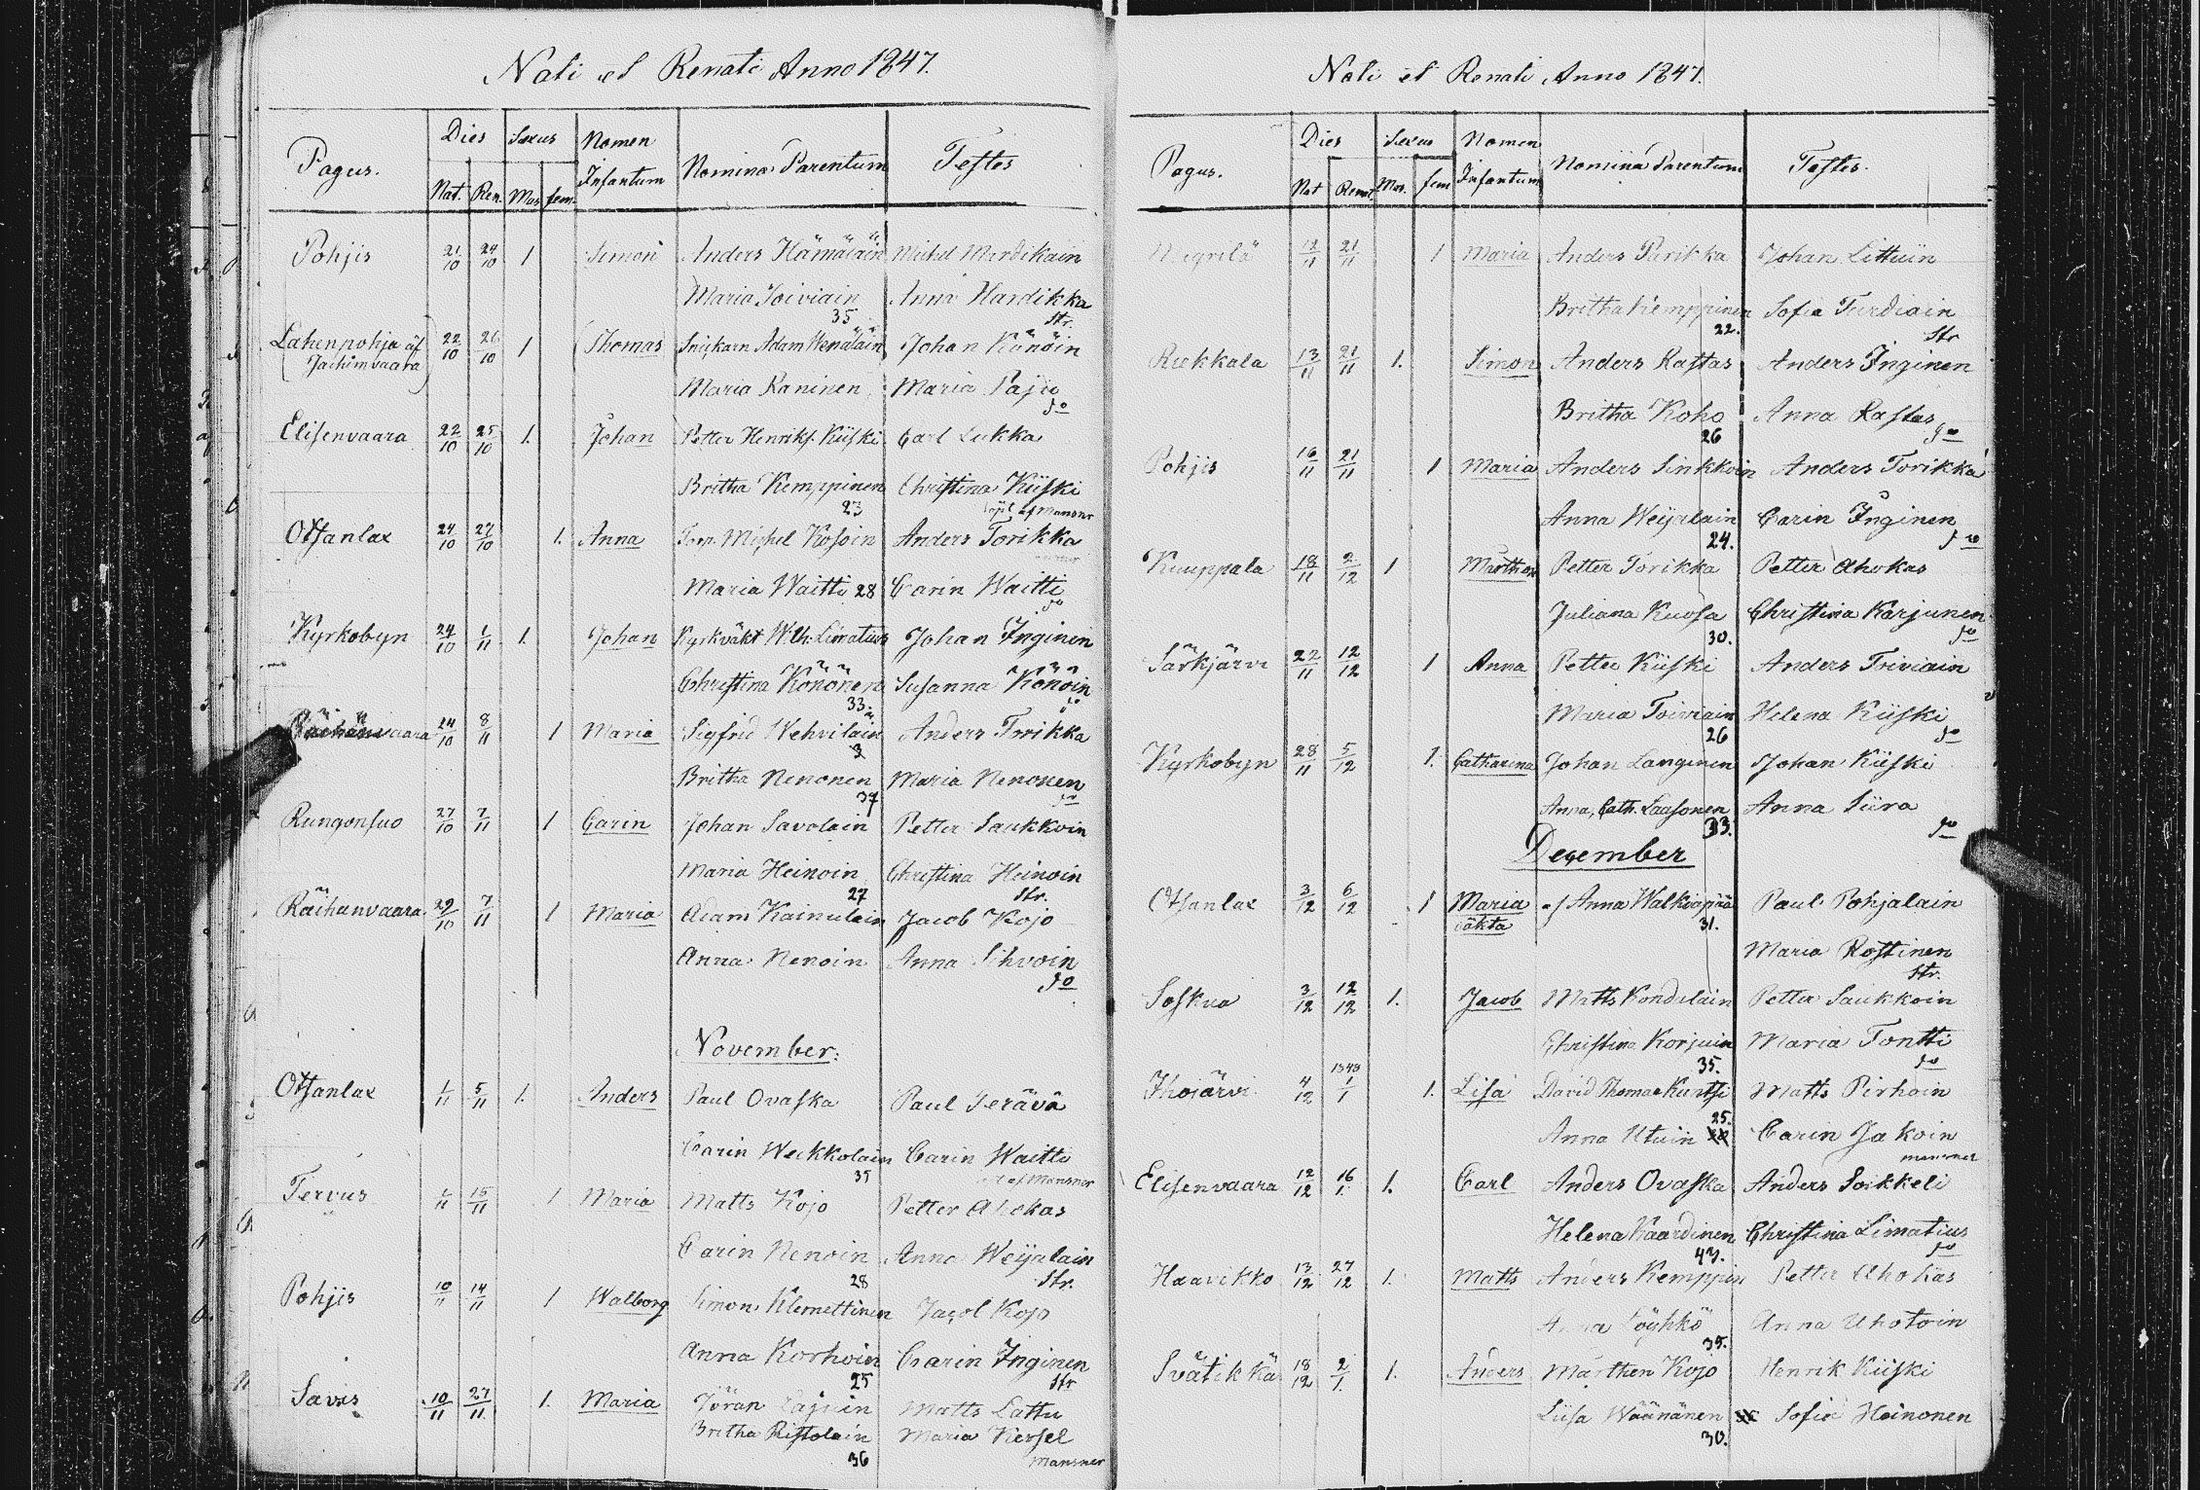 Nati et Renati Anno 1847.
Pagus. Dies Sexus Nomen Infantum Nomina Parentum Testes
Nat. Ren. Mas. fem.
Pohjis 21/10 24/10 1 Simon Anders Hämäläin Michel
Maria Toiviain Anna Hardikka
35 Str.
Lahenpohja af 22/10 26/10 1 Thomas Snickarn Adam Wenäläin Johan Könöin
Jachimvaara
Maria Raninen Maria Paju
do
Elisenvaara 22/10 25/10 1. Johan Petter Henriks. Kiiski Carl Lukka
Britha Kemppinen Christina Kiiski
23 af Mansner
Otsanlax 24/10 27/10 1. Anna Michel Kosoin Anders Torikka
Maria Waitti 28 Carin Waitti
do
Kyrkobyn 24/10 1/11 1. Johan Kyrkväkt Wilh. Limatius Johan Inginen
Christina Könönen Susanna Könöin
33. do
24/10 8/11 1 Maria Sigfrid Wehviläin Anders Torikka
Britha Nenonen Maria Nenonen
37 do
Rungonsuo 27/10 7/11 1 Carin Johan Savolain Petter Saukkoin
Maria Heinoin Christina Heinoin
27 Str.
Räihänvaara 29/10 7/11 1 Maria Adam Kainulain Jacob Kojo
Anna Nenoin Anna Sihvoin
do
November:
Otsanlax 1/11 5/11 1. Anders Paul Ovaska Paul Terävä
Carin Weckkolain Carin Waitti
35 af Mansner
Tervus 15/11 1 Maria Matts Kojo Petter Ahokas
Carin Nenoin Anna Weijalain
28 Str.
Pohjis 10/11 14/11 1 Walborg Simon Klemettinen Jacob Kojo
Anna Korhoin Carin Inginen
25 Str
Savis 10/11 27/11 1. Maria Jöran Matts Lattu
Britha Ristolain Maria Kersel
36 Mansner
Nati et Renati Anno 1847.
Pagus. Dies Sexus Nomen Infantum Nomina Parentum Testes.
Nat Renat. Mas. fem
12/11 21/11 1 Maria Anders Parikka Johan Littuin
Britha Kemppinen Sofia Turdiain
22. Str
Riekkala 13/11 21/11 1. Simon Anders Rastas Anders Inginen
Britha Koho Anna Rastas
26 do
Pohjis 16/11 21/11 1 Maria Anders Sinkkoin Anders Torikka
Anna Weijalain Carin Inginen
24. do
Kuuppala 18/11 2/12 1 Mårthen Petter Torikka Petter Ahokas
Juliana Kuosa Christina Karjunen
30. do
Särkjärvi 22/11 12/12 1 Anna Petter Kiiski Anders Toiviain
Maria Toiviain Helena Kiiski
26 do
Kyrkobyn 28/11 5/12 1. Catharina Johan Langinen Johan Kiiski
Anna Cath. Laasonen Anna Siira
33. do
December
Otsanlax 3/12 6/12 1 Maria af Anna Walkiapää Paul Pohjalain
oäkta 31.
Maria Rostinen
Str.
Soskua 3/12 12/12 1. Jacob Matts Kondilain Petter Saukkoin
Christina Korjuin Maria Tontti
35. do
1848
Ihojärvi 4/12 1/1 1. Lisa David Thomas Kuntsi Matts Pirhoin
25.
Anna Utuin Carin Jakoin
mansner
Elisenvaara 12/12 16/1. 1. Carl Anders Ovaska Anders Soikkeli
Helena Kaardinen Christina Limatius
43. do
Haavikko 13/12 27/12 1. Matts Anders Kemppin Petter Ahokas
Löyhkö Anna Ahotoin
35.
Svätikkä 18/12 2/1. 1. Anders Mårthen Kojo Henrik Kiiski
Liisa Wäänänen Sofia Heinonen
30.